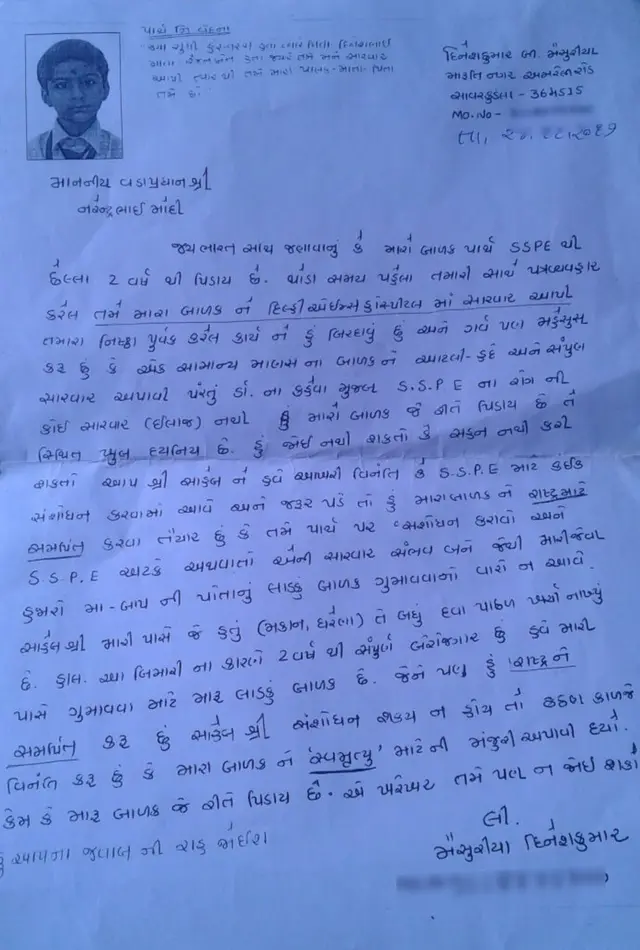 પાર્થ નિ વેદના
દિનેશકુમાર બી. મૈસુરીયા
મારૂતિ નગર અમરેલી રોડ
સાવરકુંડલા - 364515
MO.NO -
તા,
માનનીય વડાપ્રધાન શ્રી
નરેન્દ્રભાઈ મોદી
જય ભારત સાથ જણાવાનું કે મારો બાળક પાર્થ SSPE થી
છેલ્લા 2 વર્ષ થી પિડાય છે. થોડા સમય પહેલા તમારી સાથે પત્રવ્યવહાર
કરેલ તમે મારા બાળક ને દિલ્હી એઈમ્સ હોસ્પીટલ માં સારવાર આપી
તમારા નિષ્ઠા પુર્વક કરેલ કાર્ય ને હું બિરદાવું છું અને ગર્વ પણ મહેસુસ
કરૂ છું કે એક સામાન્ય માણસ ના બાળક ને આટલી હદે અને સંપુર્ણ
સારવાર અપાવી પરંતું ડૉ. ના કહેવા મુજબ S.S.P.E ના રોગ ની
કોઈ સારવાર (ઈલાજ) નથી હું મારો બાળક જે રીતે પિડાય છે તે
સ્થિત ખુબ દયનિય છે. હું જોઈ નથી શકતો કે સહન નથી કરી
શકતો આપ શ્રી સાહેબ ને હવે આખરી વિનંતિ કે S.S.P.E માટે કંઈક
સંશોધન કરવામાં આવે અને જરૂર પડે તો હું મારા બાળક ને રાષ્ટ્ર માટે
સમર્પિત કરવા તૈયાર છું કે તમે પાર્થ પર સંશોધન કરાવો અને
S.S.P.E અટકે અથવાતો એની સારવાર સંભવ બને જેથી મારી જેવા
હજારો મા-બાપ ની પોતાનું લાડકું બાળક ગુમાવવાનો વારો ન આવે.
સાહેબ શ્રી મારી પાસે જે હતું (મકાન, ઘરેણા) તે બધું દવા પાછળ ખર્ચી નાખ્યું
છે. હાલ. આ બિમારી ના કારણે 2 વર્ષ થી સંપુર્ણ બેરોજગાર છું હવે મારી
પાસે ગુમાવવા માટે મારૂ લાડકું બાળક છે. જેને પણ હું રાષ્ટ્ર ને
સમર્પિત કરૂ છું સાહેબ શ્રી સંશોધન શક્ય ન હોય તો કઠણ કાળજે
વિનંતિ કરૂ છું કે મારા બાળક ને 'સ્વમૃત્યુ' માટે ની મંજુરી અપાવી દયો.
કેમ કે મારૂ બાળક જે રીતે પિડાય છે. એ ખરેખર તમે પણ ન જોઈ શકો
હું આપના જવાબ ની રાહ જોઈશ
લી.
મૈસુરીયા દિનેશકુમાર